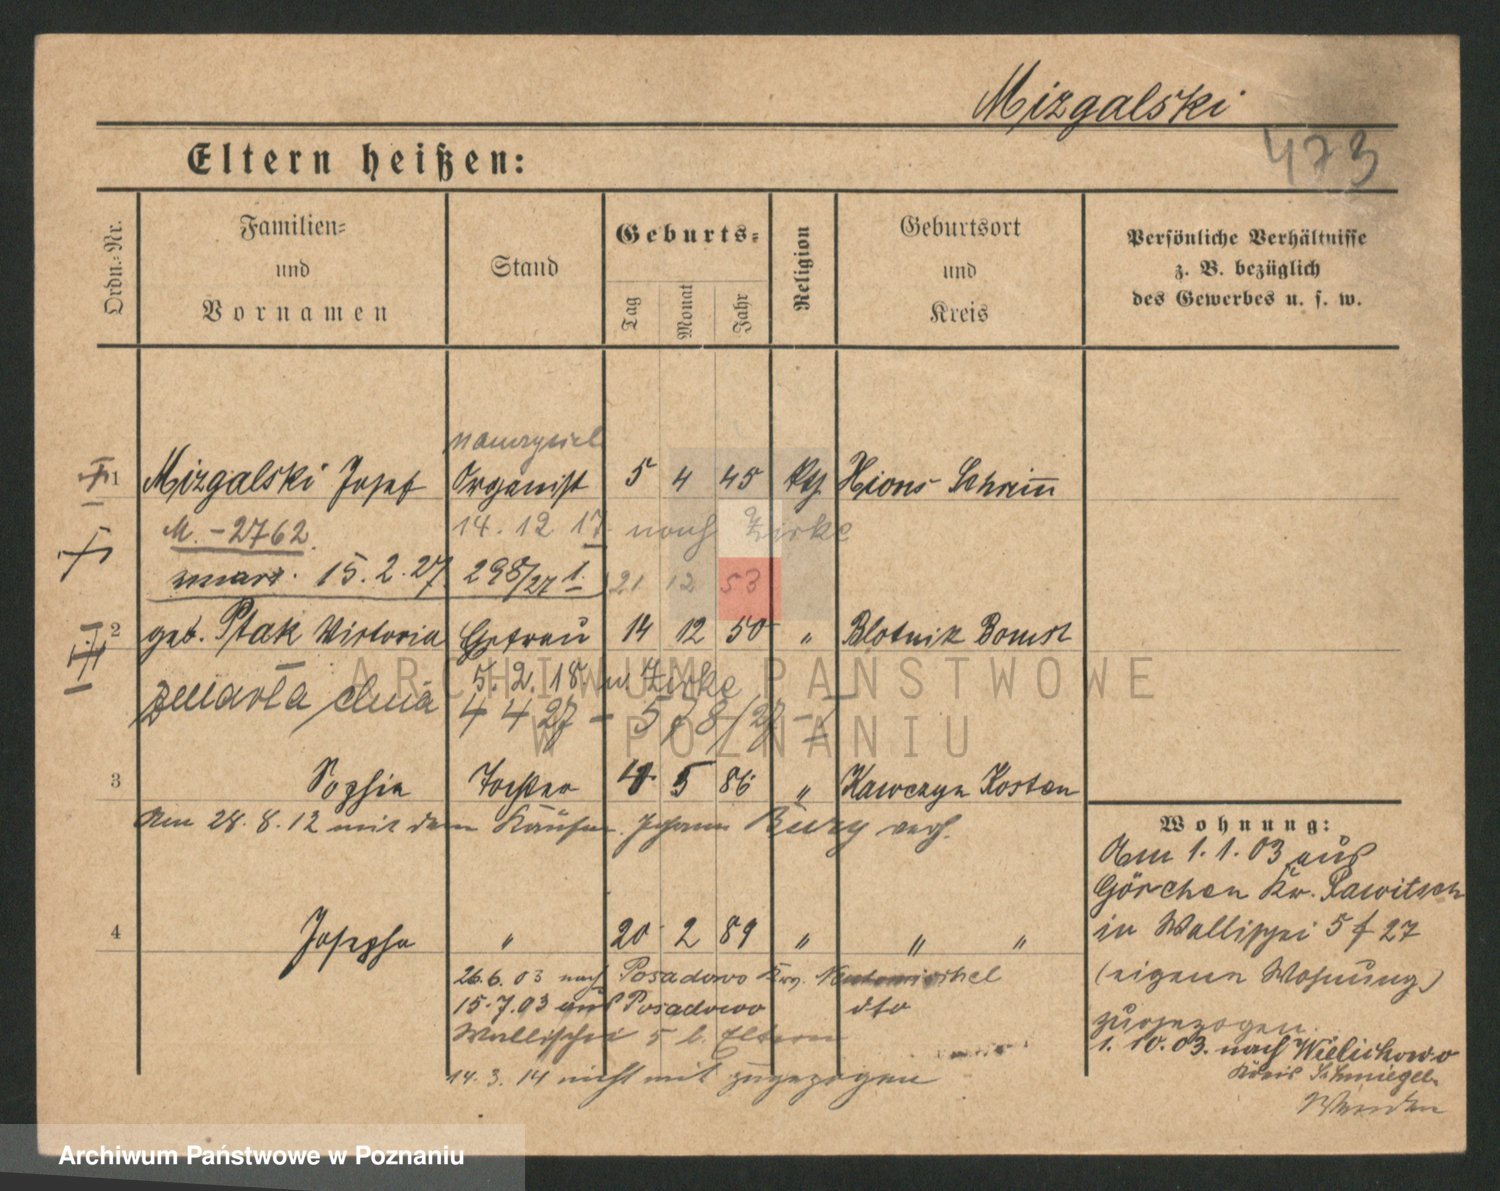 Mizgalski
473
Eltern heißen:
Ordn.-Nr.
Familien-
und
Vornamen
Stand
Geburts-
Tag
Monat
Jahr
Religion
Geburtsort
und
Kreis
Persönliche Verhältnisse
z. B. bezüglich
des Gewerbes u. s. w.
nauczyciel
1 Mizgalski Josef Organist 5 4 45 kth Xions Schrimm
M. -2762. 14. 12 17 nach Zirke
15. 2. 27. 298/27 1. 21 12 53
2 geb. Ptak Victoria Ehefrau 14 12 50 " Blotnik Bomst
5. 2. 18 Zirke
zmarła dnia 4 4 27 - 578/27 -
ARCHIWUM PAŃSTWOWE
W POZNANIU
3 Sophie Tochter 5 86 " Kawczyn Kosten
Am 28. 8. 12 mit dem Käufm. Johann verh.
4 Josepha " 20 2 89 " " "
26. 6. 03 nach Posadowo Krs. Neutomischel
15. 7. 03 aus Posadowo dto
Wallischei 5 b. Eltern
14. 3. 14 nicht mit zugezogen
Wohnung:
Am 1. 1. 03 aus
Görchen Kr. Rawitsch
in Wallischei 5 f 27
(eigene Wohnung)
zugezogen.
1. 10. 03. nach Wielichowo
Kreis Schmiegel.
Wenden
Archiwum Państwowe w Poznaniu